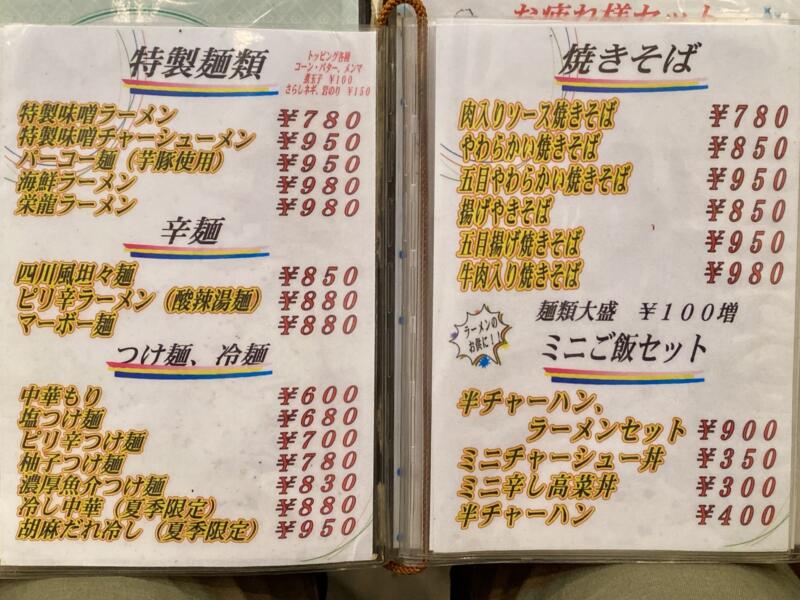 特製麺類
トッピング各種
コーン・バター、メンマ
煮玉子 ¥100
さらしネギ、岩のり ¥150
特製味噌ラーメン ¥780
特製味噌チャーシューメン ¥950
パーコー麺（芋豚使用） ¥950
海鮮ラーメン ¥980
栄龍ラーメン ¥980
辛麺
四川風坦々麺 ¥850
ピリ辛ラーメン（酸辣湯麺） ¥880
マーボー麺 ¥880
つけ麺、冷麺
中華もり ¥600
塩つけ麺 ¥680
ピリ辛つけ麺 ¥700
柚子つけ麺 ¥780
濃厚魚介つけ麺 ¥830
冷し中華（夏季限定） ¥880
胡麻だれ冷し（夏季限定） ¥950
お疲れ様セット
焼きそば
肉入りソース焼きそば ¥780
やわらかい焼きそば ¥850
五目やわらかい焼きそば ¥950
揚げやきそば ¥850
五目揚げ焼きそば ¥950
牛肉入り焼きそば ¥980
麺類大盛 ¥100増
ラーメンの
お供に！！
ミニご飯セット
半チャーハン、
ラーメンセット ¥900
ミニチャーシュー丼 ¥350
ミニ辛し高菜丼 ¥300
半チャーハン ¥400